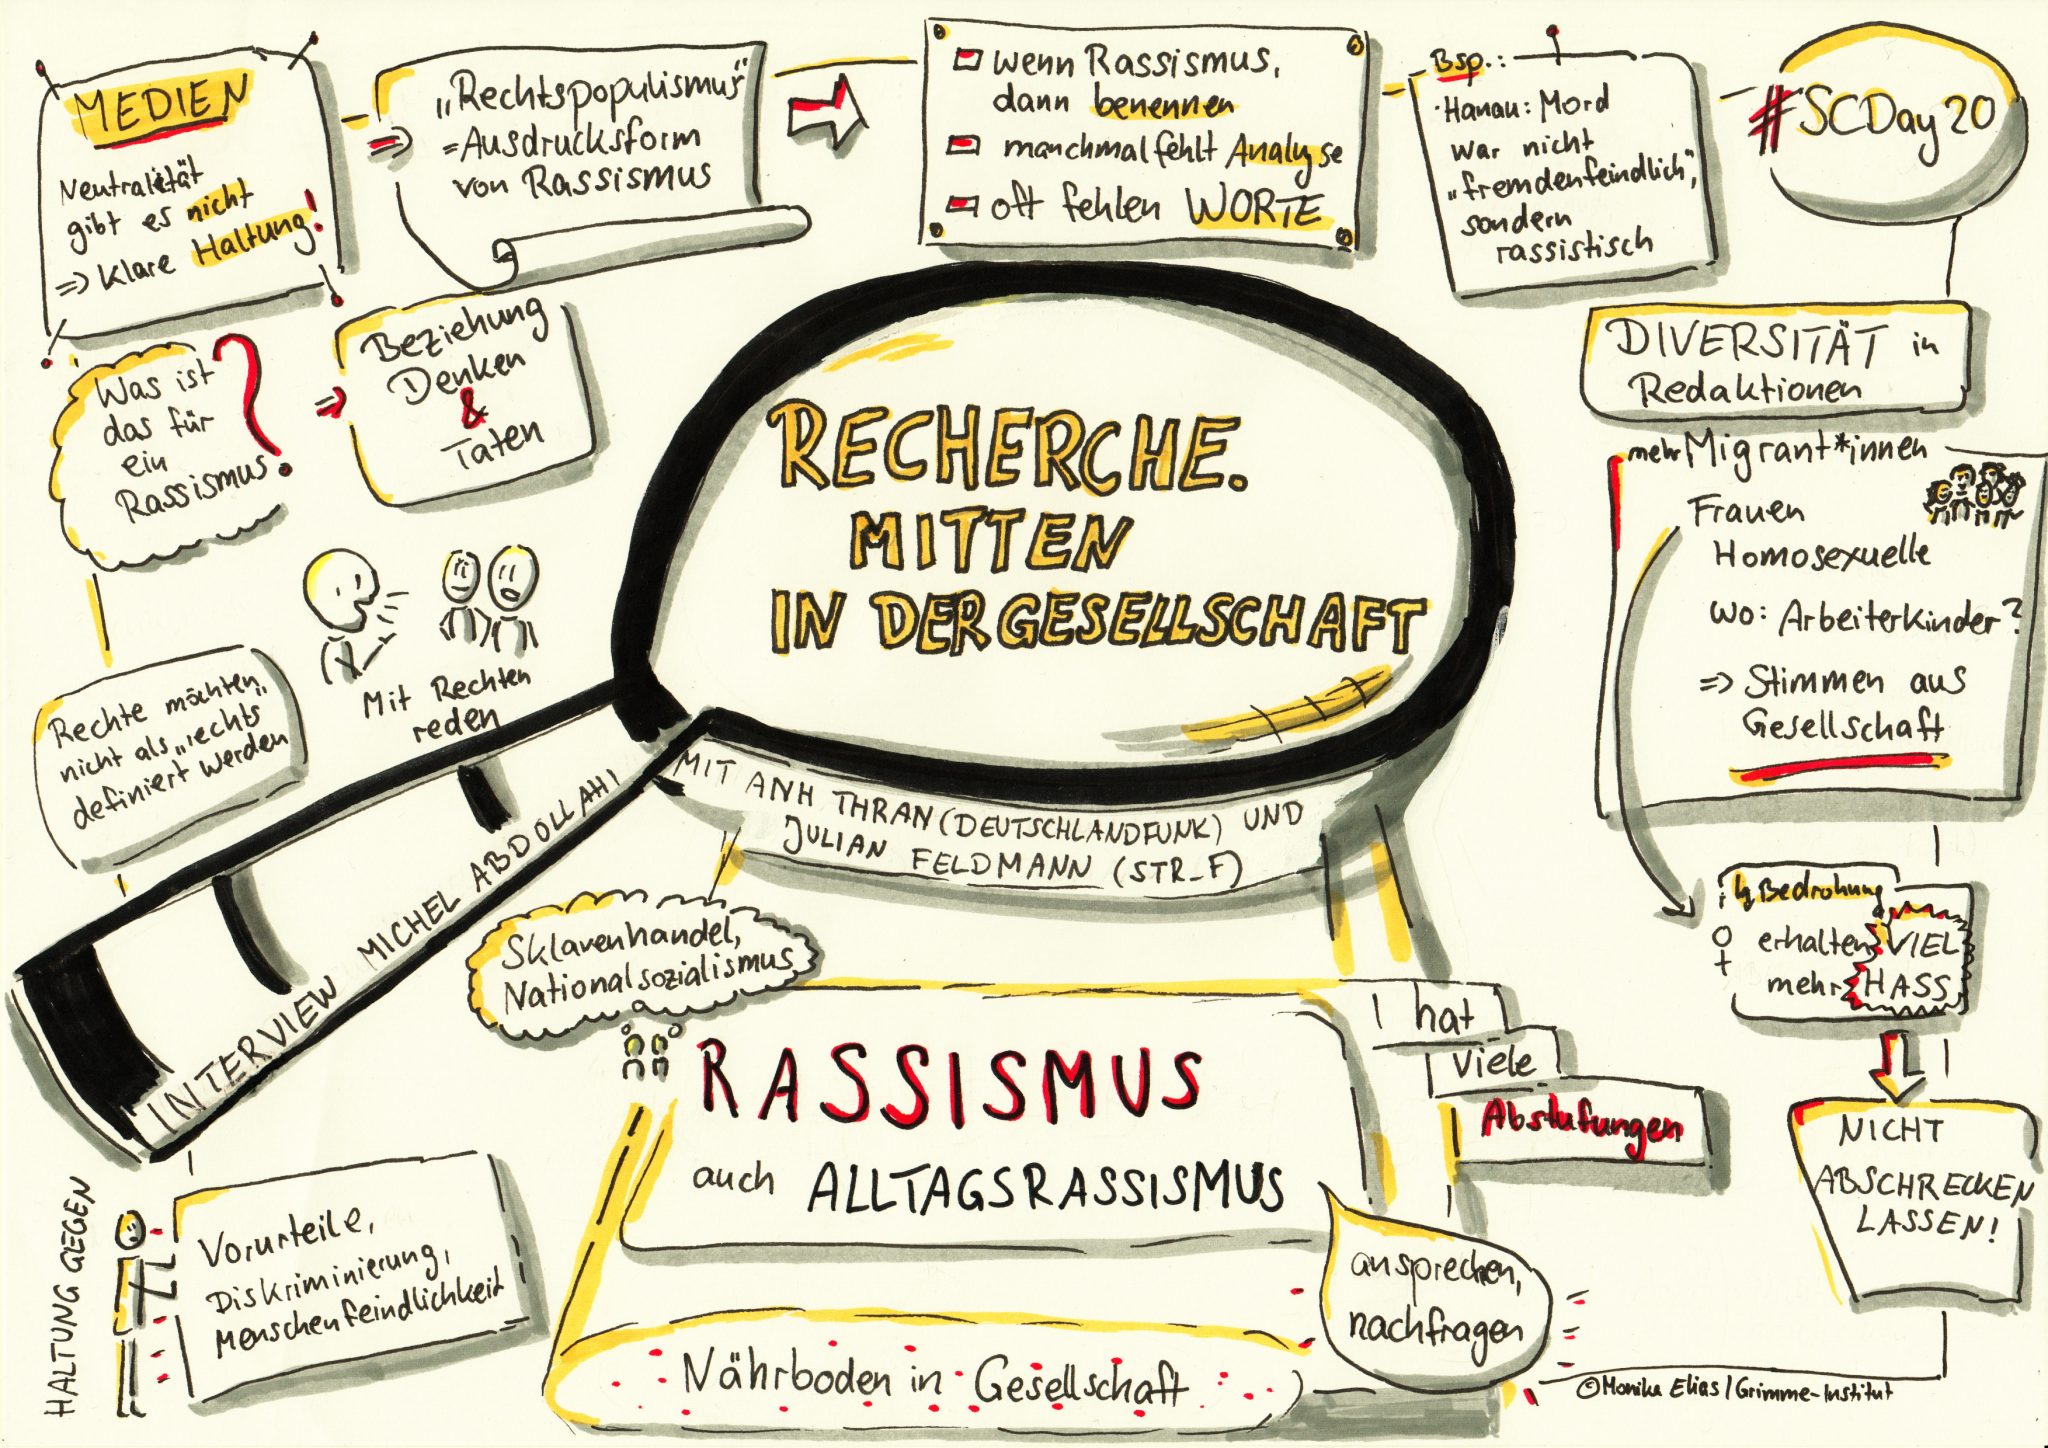 MEDIEN
Neutralität
gibt es nicht
=> klare Haltung!
=> „Rechtspopulismus"
= Ausdrucksform
von Rassismus
wenn Rassismus,
dann benennen
manchmal fehlt Analyse
oft fehlen WORTE
Bsp.:
· Hanau: Mord
war nicht
„fremdenfeindlich",
sondern
rassistisch
#SCDay20
Was ist
das für
ein
Rassismus?
=> Beziehung
Denken
&
Taten
Mit Rechten
reden
Rechte möchten
nicht als „rechts"
definiert werden
RECHERCHE.
MITTEN
IN DER GESELLSCHAFT
MIT ANH THRAN (DEUTSCHLANDFUNK) UND
JULIAN FELDMANN (STR_F)
INTERVIEW MICHEL ABDOLLAHI
DIVERSITÄT in
Redaktionen
mehr Migrant*innen
Frauen
Homosexuelle
wo: Arbeiterkinder?
=> Stimmen aus
Gesellschaft
Bedrohung
erhalten VIEL
mehr HASS
NICHT
ABSCHRECKEN
LASSEN!
Sklavenhandel,
Nationalsozialismus
RASSISMUS
auch ALLTAGSRASSISMUS
hat
viele
Abstufungen
ansprechen,
nachfragen
Nährboden in Gesellschaft
HALTUNG GEGEN
Vorurteile,
Diskriminierung,
Menschenfeindlichkeit
©Monika Elias/Grimme-Institut